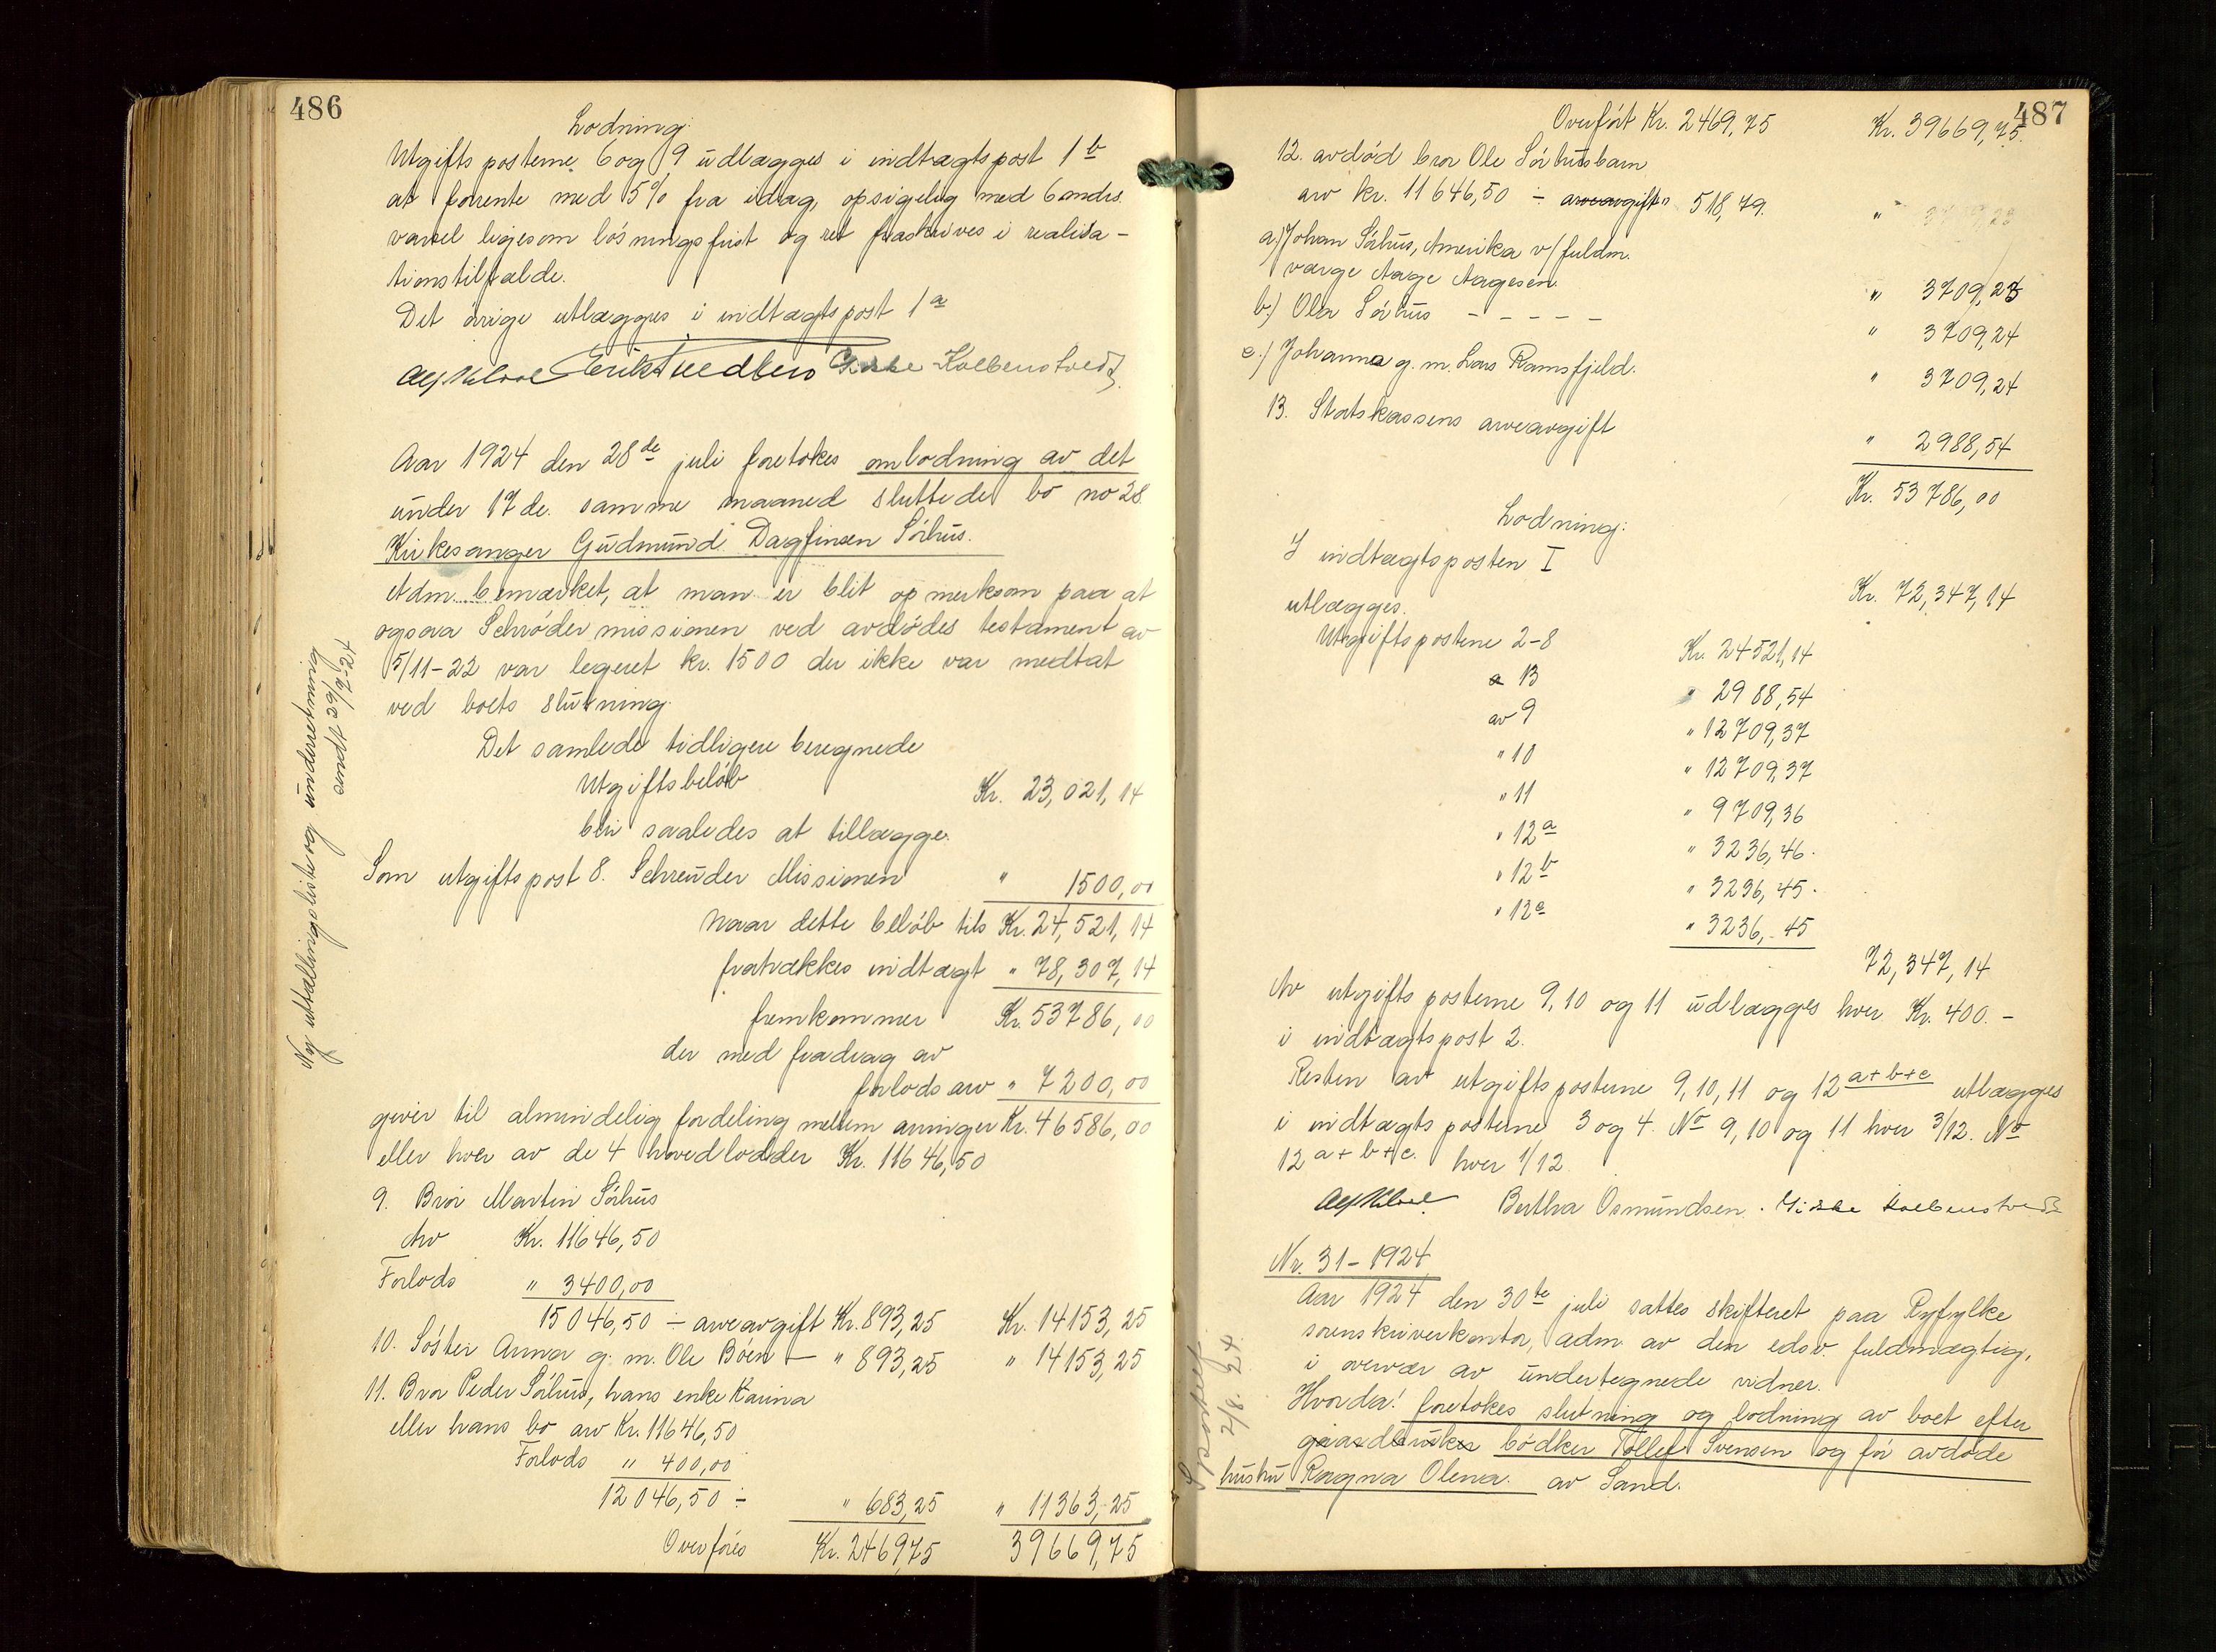 486
Lodning:
Utgiftsposterne 6 og 9 udlægges i indtægtspost 1 b
at forrente med 5% fra idag, opsigelig med 6 mdrs.
varsel ligesom løsningsfrist og ret fraskrives i realisa-
tionstilfælde.
Det øvrige utlægges i indtægtspost 1 a
Giske Kolbenstvedt
Aar 1924 den 28de juli foretokes omlodning av det
under 17de. samme maaned sluttede bo no 28
Kirkesanger Gudmund Dagfinsen Sørhus.
Adm. bemærket, at man er blit opmerksom paa at
ogsaa Schrøder missionen ved avdødes testament av
5/11-22 var legeret kr. 1500 der ikke var medtat
ved boets slutning.
Det samlede tidligere beregnede
Utgiftsbeløb Kr. 23,021,14
blir saaledes at tillægge.
Som utgiftspost 8. Schreuder Missionen " 1500,00
Naar dette beløb tils Kr. 24,521,14
fratrækkes indtægt " 78,307,14
fremkommer Kr. 53786,00
der med fradrag av
forlods arv " 7200,00
giver til almindelig fordeling mellem arvinger Kr. 46586,00
eller hver av de 4 hovedlodder Kr. 11646,50
9. Bror Martin Sørhus
Arv Kr. 11646,50
Forlods " 3400,00
15046,50 ÷ arveavgift Kr. 893,25 Kr. 14153,25
10. Søster Anna g. m. Ole Bøen — " 893,25 " 14153,25
11. Bror Peder Sørhus, hans enke Karina
eller hans bo arv Kr. 11646,50
Forlods " 400,00
12046,50 ÷ " 683,25 " 11363,25
Overføres Kr. 2469,75 39669,75
Ny uttællingsliste og underretning
sendt 29/7-24
487
Overført Kr. 2469,75 Kr. 39669,75
12. avdød bror Ole Sørhus barn
arv kr. 11646,50 ÷ arveavgift " 518,79. "
a) Johan Sørhus, Amerika v/ fuldm.
værge Aage Aagesen " 3709,23
b.) Ola Sørhus - - - - - " 3709,24
c.) Johanna g. m. Lars Ramsfjeld. " 3709,24
13. Statskassens arveavgift " 2988,54
Kr. 53786,00
Lodning:
I indtægtsposten I Kr. 72,347,14
utlægges.
Utgiftspostene 2-8 Kr. 24521,14
13 " 2988,54
av 9 " 12709,37
" 10 " 12709,37
" 11 " 9709,36
" 12 a " 3236,46.
" 12 b " 3236,45.
" 12 c " 3236,45
72,347,14
Av utgiftsposterne 9, 10 og 11 udlægges hver Kr. 400.-
i indtægtspost 2.
Resten av utgiftsposterne 9, 10, 11 og 12 a+b+c utlægges
i indtægtsposterne 3 og 4. No 9, 10 og 11 hver 3/12. No
12 a+b+c. hver 1/12.
Bertha Osmundsen. Giske Kolbenstvedt
Nr. 31-1924
Aar 1924 den 30te juli sattes skifteret paa Ryfylke
sorenskriverkontor, adm. av den edsv. fuldmægtig,
i overvær av undertegnede vidner.
Hvorda! foretokes slutning og lodning av boet efter
gaardbruker bødker Tollef Svensen og før avdøde
hustru Ragna Olena. av Sand.
2/8.24